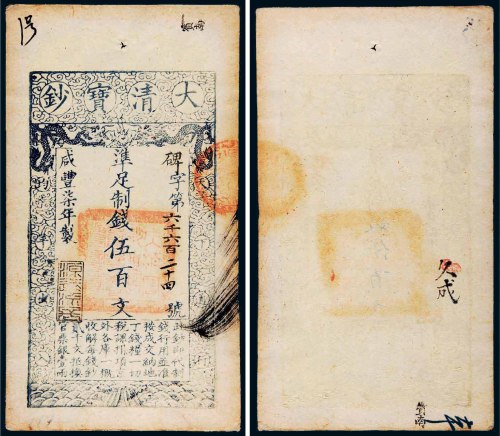 大清寶鈔
碑字第六千六百二十四號
準足制錢伍百文
咸豐柒年製
此鈔即代制
錢行用並准
按成交納地
丁錢糧一切
稅課捐項京
外各庫一概
收解每錢鈔
貳千文抵換
官票銀壹兩
久成